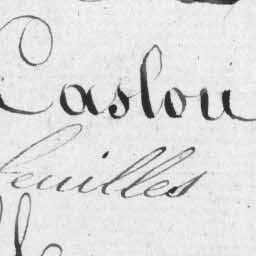 Caslou
feuilles